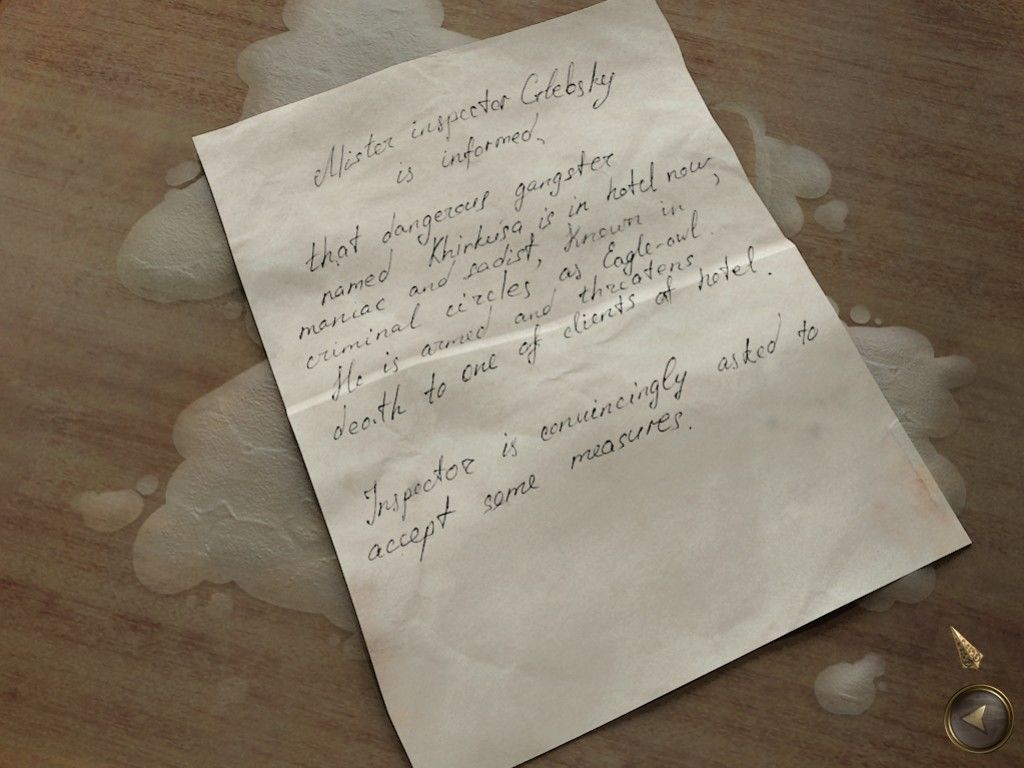 Mister inspector Glebsky
is informed,
that dangerous gangster
named Khinkusa is in hotel now,
maniac and sadist, known in
criminal circles as Eagle-owl.
He is armed and threatens
death to one of clients of hotel.
Inspector is convincingly asked to
accept some measures.